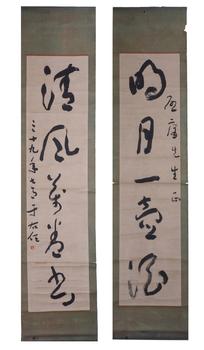 明月一壺酒
先生正
清風萬卷書
三十九年 于右任